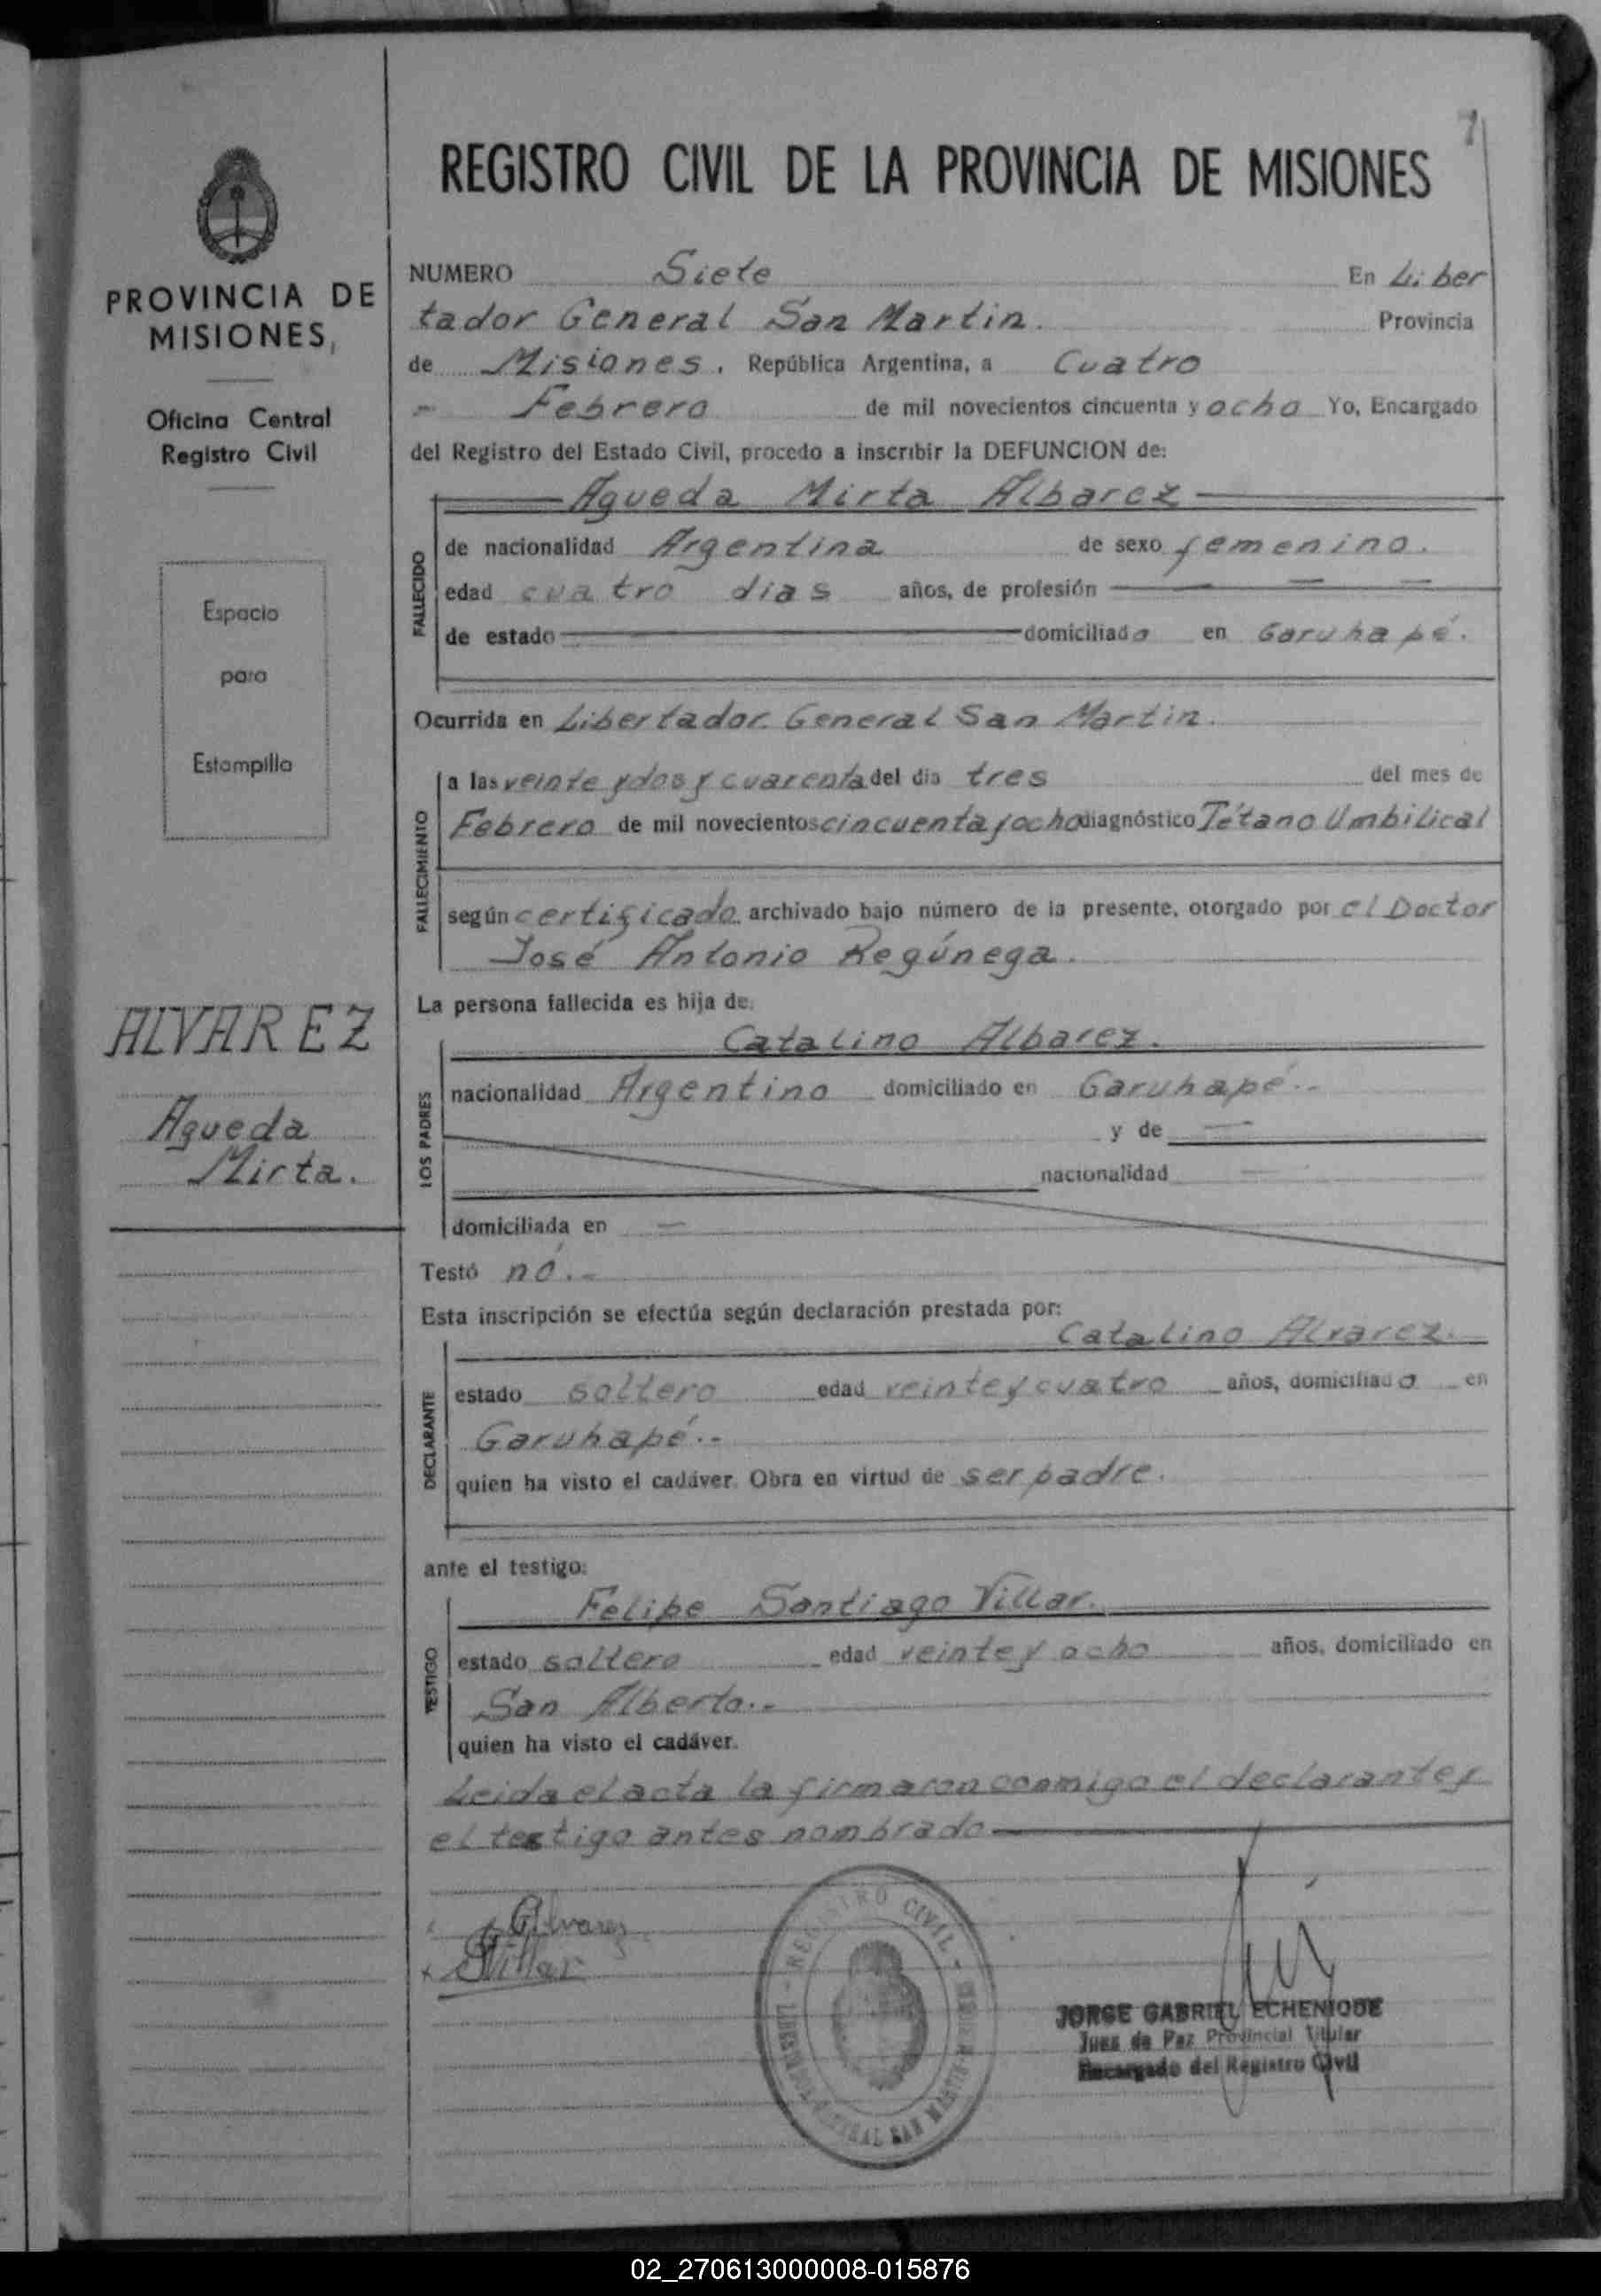 7
REGISTRO CIVIL DE LA PROVINCIA DE MISIONES
PROVINCIA DE
MISIONES,
Oficina Central
Registro Civil
Espacio
para
Estampilla
ALVAREZ
Agueda
Mirta.
NUMERO Siete En Liber
tador General San Martin. Provincia
de Misiones. República Argentina, a Cuatro
Febrero de mil novecientos cincuenta y ocho Yo, Encargado
del Registro del Estado Civil, procedo a inscribir la DEFUNCION de:
Agueda Mirta Albarez
FALLECIDO
de nacionalidad Argentina de sexo femenino.
edad cuatro dias años, de profesión
de estado domiciliada en Garuhapé.
Ocurrida en Libertador General San Martin.
FALLECIMIENTO
a las veinte y dos y cuarenta del dia tres del mes de
Febrero de mil novecientos cincuenta y ocho diagnóstico Tétano Umbilical
según certificado archivado bajo número de la presente, otorgado por el Doctor
José Antonio Regúnega.
La persona fallecida es hija de:
LOS PADRES
Catalino Albarez.
nacionalidad Argentino domiciliado en Garuhapé..
y de
nacionalidad
domiciliada en
Testó nó.-
Esta inscripción se efectúa según declaración prestada por:
Catalino Alvarez.
DECLARANTE
estado soltero edad veinte y cuatro años, domiciliado en
Garuhapé..
quien ha visto el cadáver. Obra en virtud de ser padre.
ante el testigo:
Felipe Santiago Villar.
TESTIGO
estado soltero edad veinte y ocho años, domiciliado en
San Alberto..
quien ha visto el cadáver.
Leida el acta la firmaron conmigo el declarante y
el testigo antes nombrado
Alvarez
Villar
REGISTRO CIVIL
LIBERTADOR GENERAL SAN MARTIN
JORGE GABRIEL ECHENIQUE
Juez de Paz Provincial Titular
Encargado del Registro Civil
02_270613000008-015876